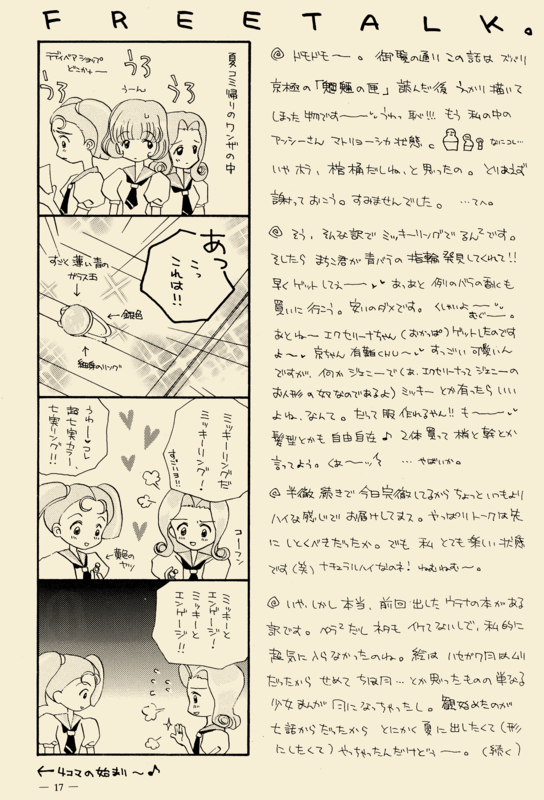 FREETALK。
夏コミ帰りのワンザの中
ディベアショップ
どこかナー
うろ
うろ
うろ
うーん
あっ
こっ
これは!!
すごく薄い青の
ガラス玉
←銀色
細身のリング
ミッキーリングだ
ミッキーリング!
すごいヨ!!
うわーコレ
超七実カラー、
七実リング!!
コーフン
←黄色の
ヤツ
ミッキーと
エンゲージ!
ミッキーと
エンゲージ!!
←4コマの始まり〜♪
— 17 —
@ ドモドモ〜。 御覧の通り この話は ズバリ
京極の「魍魎の匣」読んだ後 うっかり描いて
しまった物です——うわっ恥!!! もう 私の中の
アッシーさん マトリョーシカ状態。 なにコレ…
いや ホラ、棺桶だしね、と思ったの。とりあえず
謝っておこう。すみませんでした。 …てへ。
@ そう、そんな訳で ミッキーリングで るんるんです。
そしたら まちこ君が 青バラの 指輪 発見してくれて!!
早くゲットしてえ——。あっあと 例のバラの剣にも
買いに行こう。安いのダメです。くしゃいよ——
むぐー。
あとねー エクセリーナちゃん(おかっぱ)ゲットしたのです
よ〜 京ちゃん 有難chu〜 すっごい 可愛いん
ですが、何か ジェニーで(あ、エクセリーナって ジェニーの
お人形の女なのであるよ) ミッキー とか有ったら いい
よね、なんて。だって 服 作れるやん!! も——
髪型とかも 自由自在♪ 2体 買って 梢と幹とか
言ってよう。くあ〜ッ …やばいか。
@ 半徹 続きで 今日 完徹してるからちょっといつもより
ハイな感じで お届けしてます。やっぱりトークは先
に しとくべきだったか。でも 私 とても楽しい状態
です(笑) ナチュラルハイなのネ! ねむねむ〜。
@ いや、しかし 本当、前回 出した ウテナの本がある
訳です。 ベラ2だし ネタも イケてないしで、私的に
超気に入らなかったのね。絵は ハセガワ月はムリ
だったから せめて ちほ月… とか思ったものの 単なる
少女まんが 月に なっちゃったし。観始めたのが
七話からだったから とにかく 夏に出したくて(形
にしたくて) やっちゃったんだけどぃ——。 (続く)